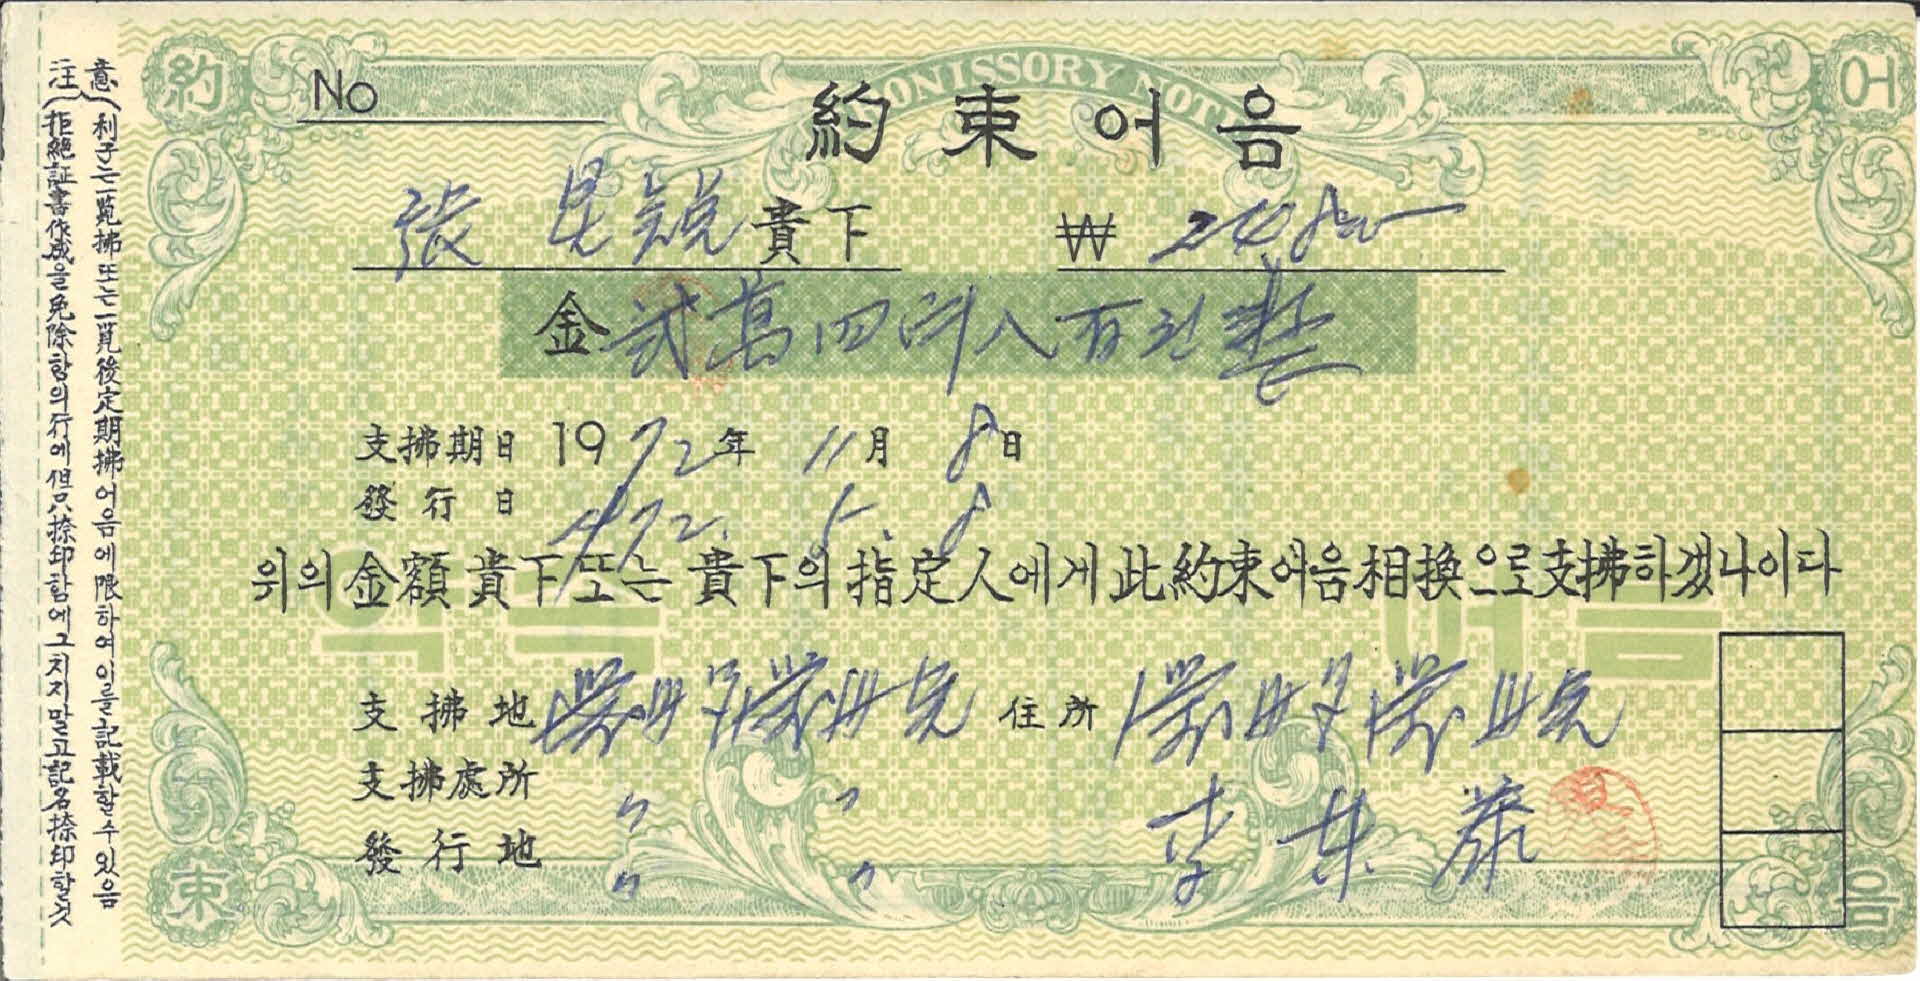 注意
利子는 一覽拂 또는 一覽後定期拂 어음에 限하여 이를 記載할 수 있음
拒絶証書作成을 免除함의 行에 但只 捺印함에 그치지 말고 記名捺印할 것
約
어
束
음
No
約束어음
張 貴下 ₩ 24800
金 貳萬四 八百원整
支拂期日 1972年 11月 8日
發行日 1972. 5. 8
위의 金額 貴下 또는 貴下의 指定人에게 此約束어음 相換으로 支拂하겠나이다
약속 어음
支拂地 住所
支拂處所 〃 〃
發行地 〃 〃 李